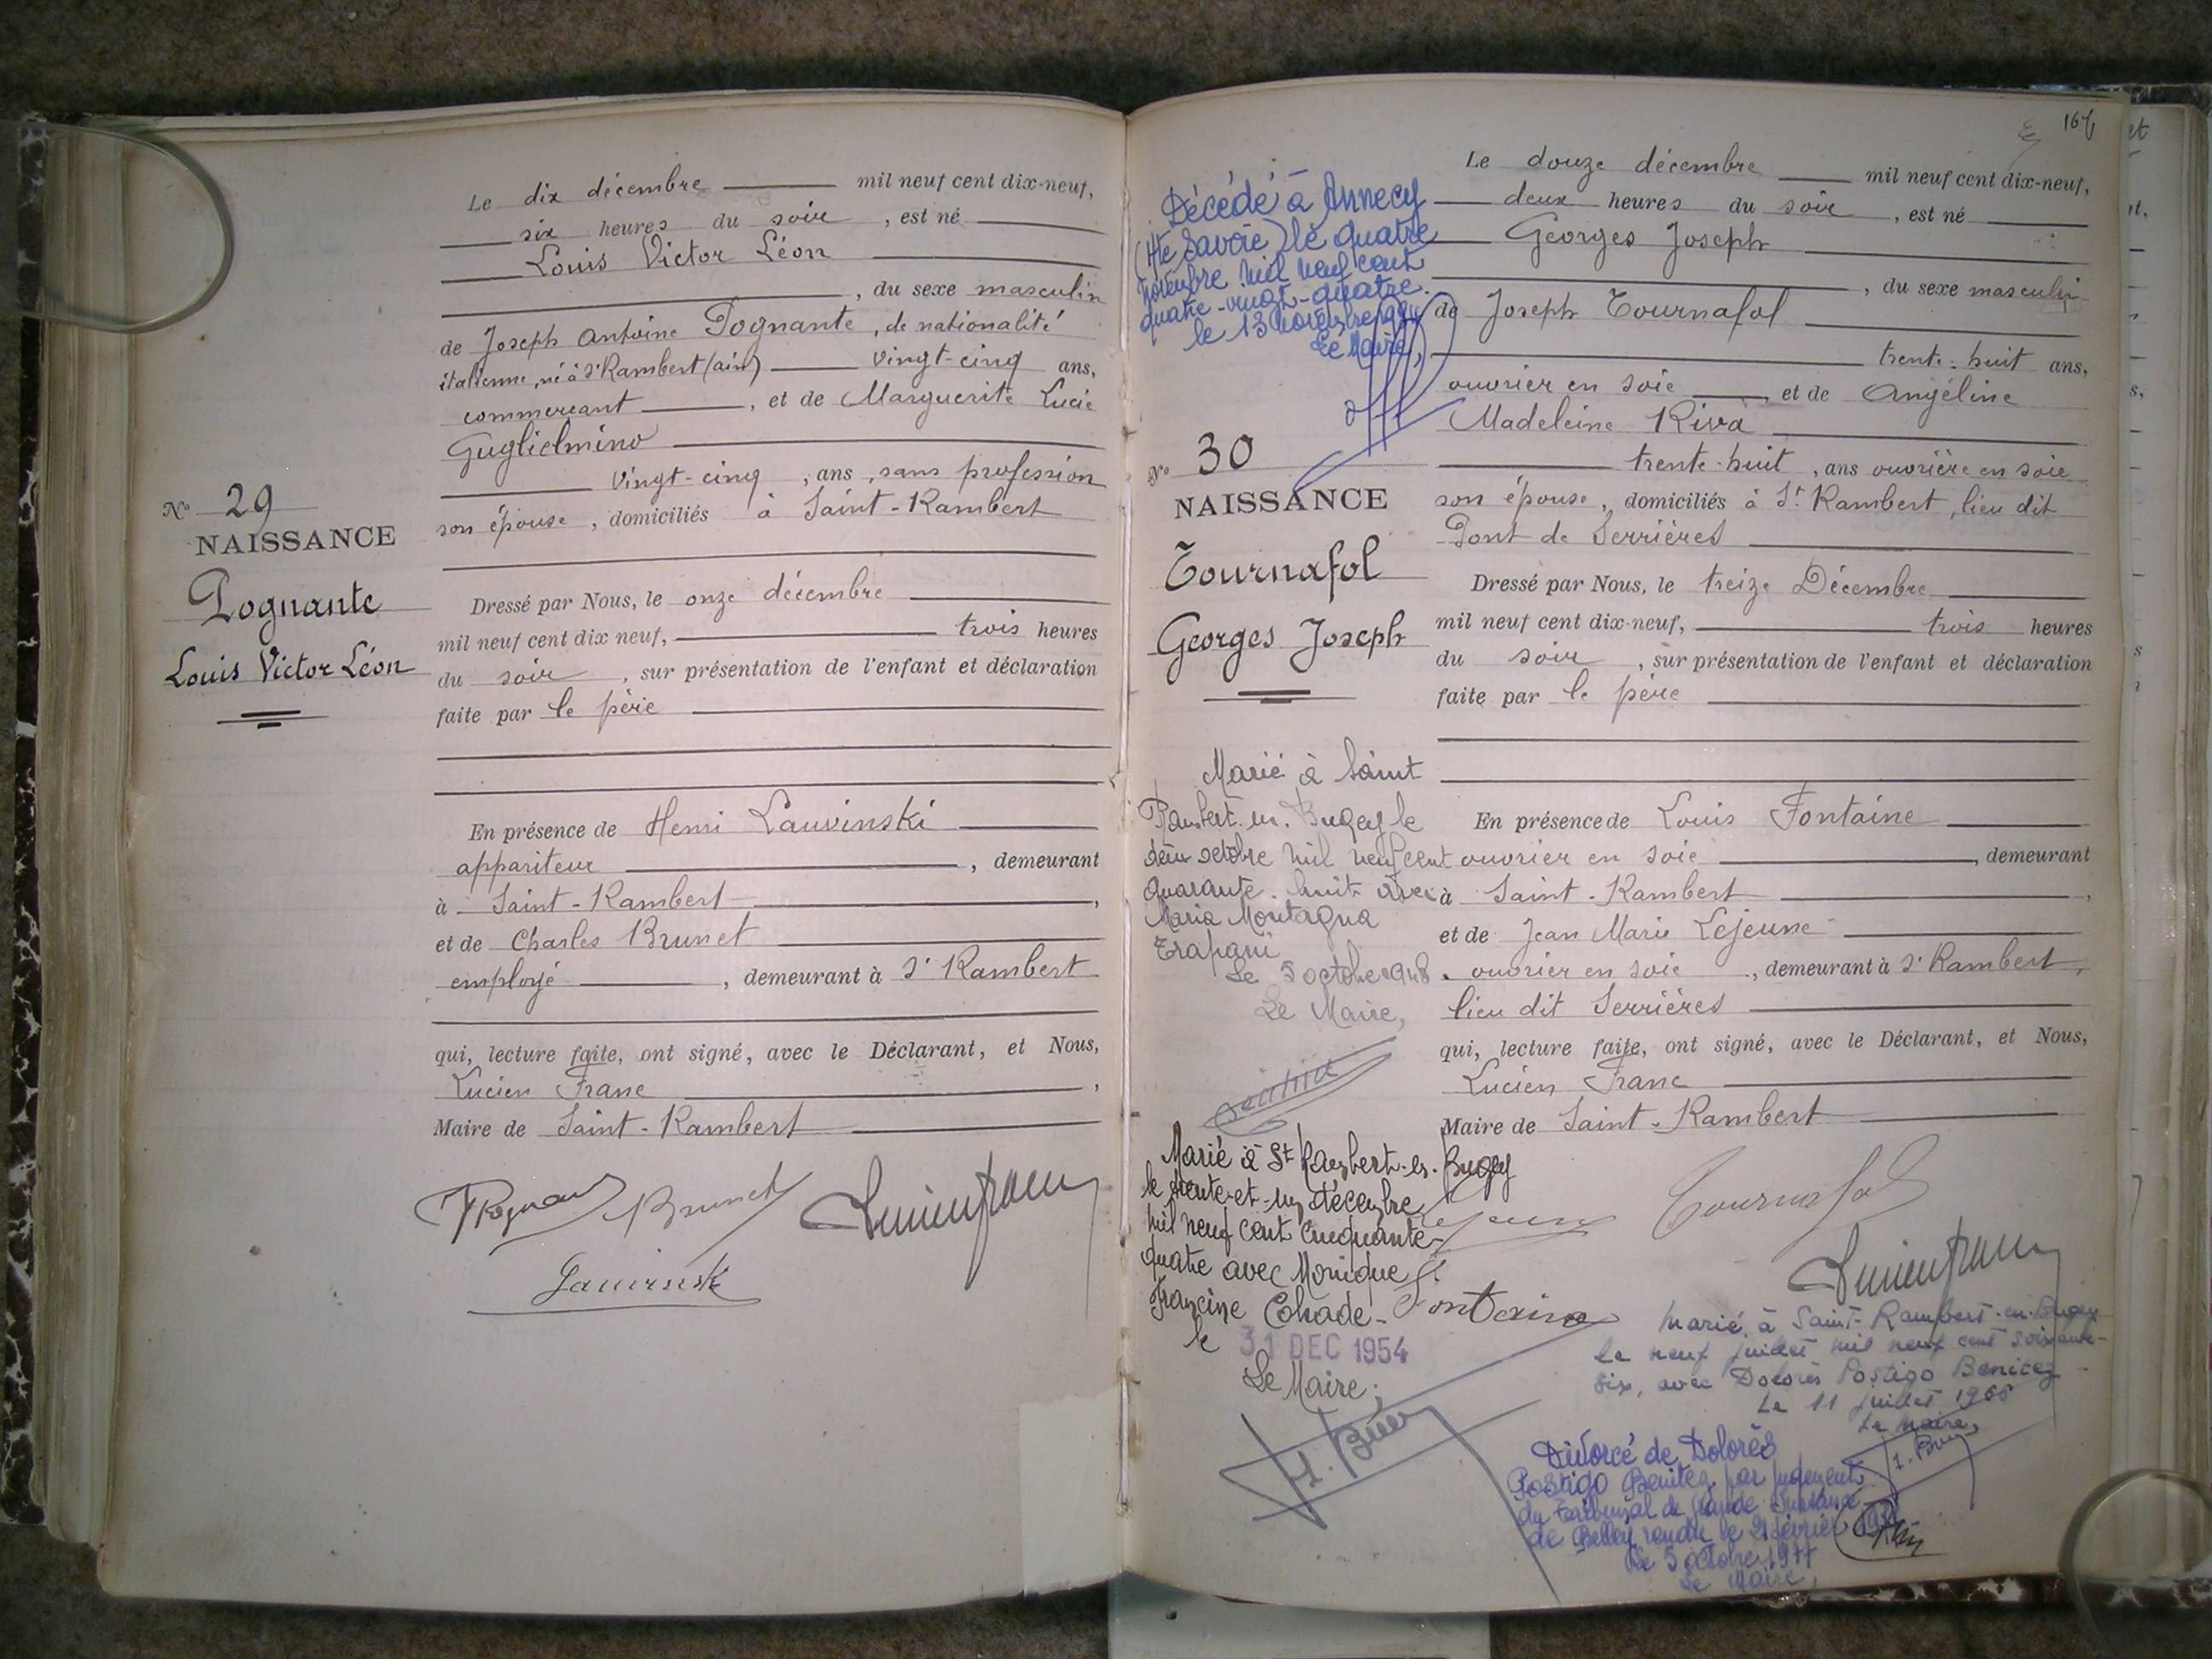 Le dix décembre mil neuf cent dix-neuf,
six heures du soir, est né
Louis Victor Léon
, du sexe masculin
de Joseph Antoine Pognante, de nationalité
italienne, né à St Rambert (ain) vingt-cinq ans,
commerçant, et de Marguerite Lucie
Guglielmino
vingt-cinq, ans, sans profession
son épouse, domiciliés à Saint-Rambert
N° 29
NAISSANCE
Pognante
Louis Victor Léon
Dressé par Nous, le onze décembre
mil neuf cent dix neuf, trois heures
du soir, sur présentation de l'enfant et déclaration
faite par le père
En présence de Henri Lauvinski
appariteur, demeurant
à Saint-Rambert,
et de Charles Brunet
employé, demeurant à St Rambert
qui, lecture faite, ont signé, avec le Déclarant, et Nous,
Lucien Franc,
Maire de Saint-Rambert
Brunet
167
Le douze décembre mil neuf cent dix-neuf,
deux heures du soir, est né
Georges Joseph
, du sexe masculin
de Joseph Tournafol
trente-huit ans,
ouvrier en soie, et de Angéline
Madeleine Riva
trente-huit, ans ouvrière en soie
son épouse, domiciliés à St Rambert, lieu dit
Pont de Serrières
Décédé à Annecy
(Hte Savoie) le quatre
novembre mil neuf cent
quatre-vingt-quatre.
le 13 novembre 1984
Le Maire,
N° 30
NAISSANCE
Tournafol
Georges Joseph
Dressé par Nous, le treize Décembre
mil neuf cent dix-neuf, trois heures
du soir, sur présentation de l'enfant et déclaration
faite par le père
En présence de Louis Fontaine
ouvrier en soie, demeurant
à Saint-Rambert,
et de Jean Marie Lejeune
ouvrier en soie, demeurant à St Rambert,
lieu dit Serrières
qui, lecture faite, ont signé, avec le Déclarant, et Nous,
Lucien Franc
Maire de Saint-Rambert
Marié à Saint
Rambert-en-Bugey le
deux octobre mil neuf cent
quarante-huit avec
Maria Montagna
Trapani
Le 5 octobre 1948.
Le Maire,
Marié à St Rambert-en-Bugey
le trente-et-un décembre
mil neuf cent cinquante-
quatre avec Monique
Francine Cohade-
le 31 DEC 1954
Le Maire;
Lejeune
Tournafol
Fontaine
Marié à Saint-Rambert-en-Bugey
le neuf juillet mil neuf cent soixante-
six, avec Dolorès Postigo Benitez-
Le 11 juillet 1966
Le Maire,
Divorcé de Dolorès
Postigo Benitez par jugement
du Tribunal de Grande Instance
de Belley rendu le 21 février
Le 5 octobre 1977
Le Maire,